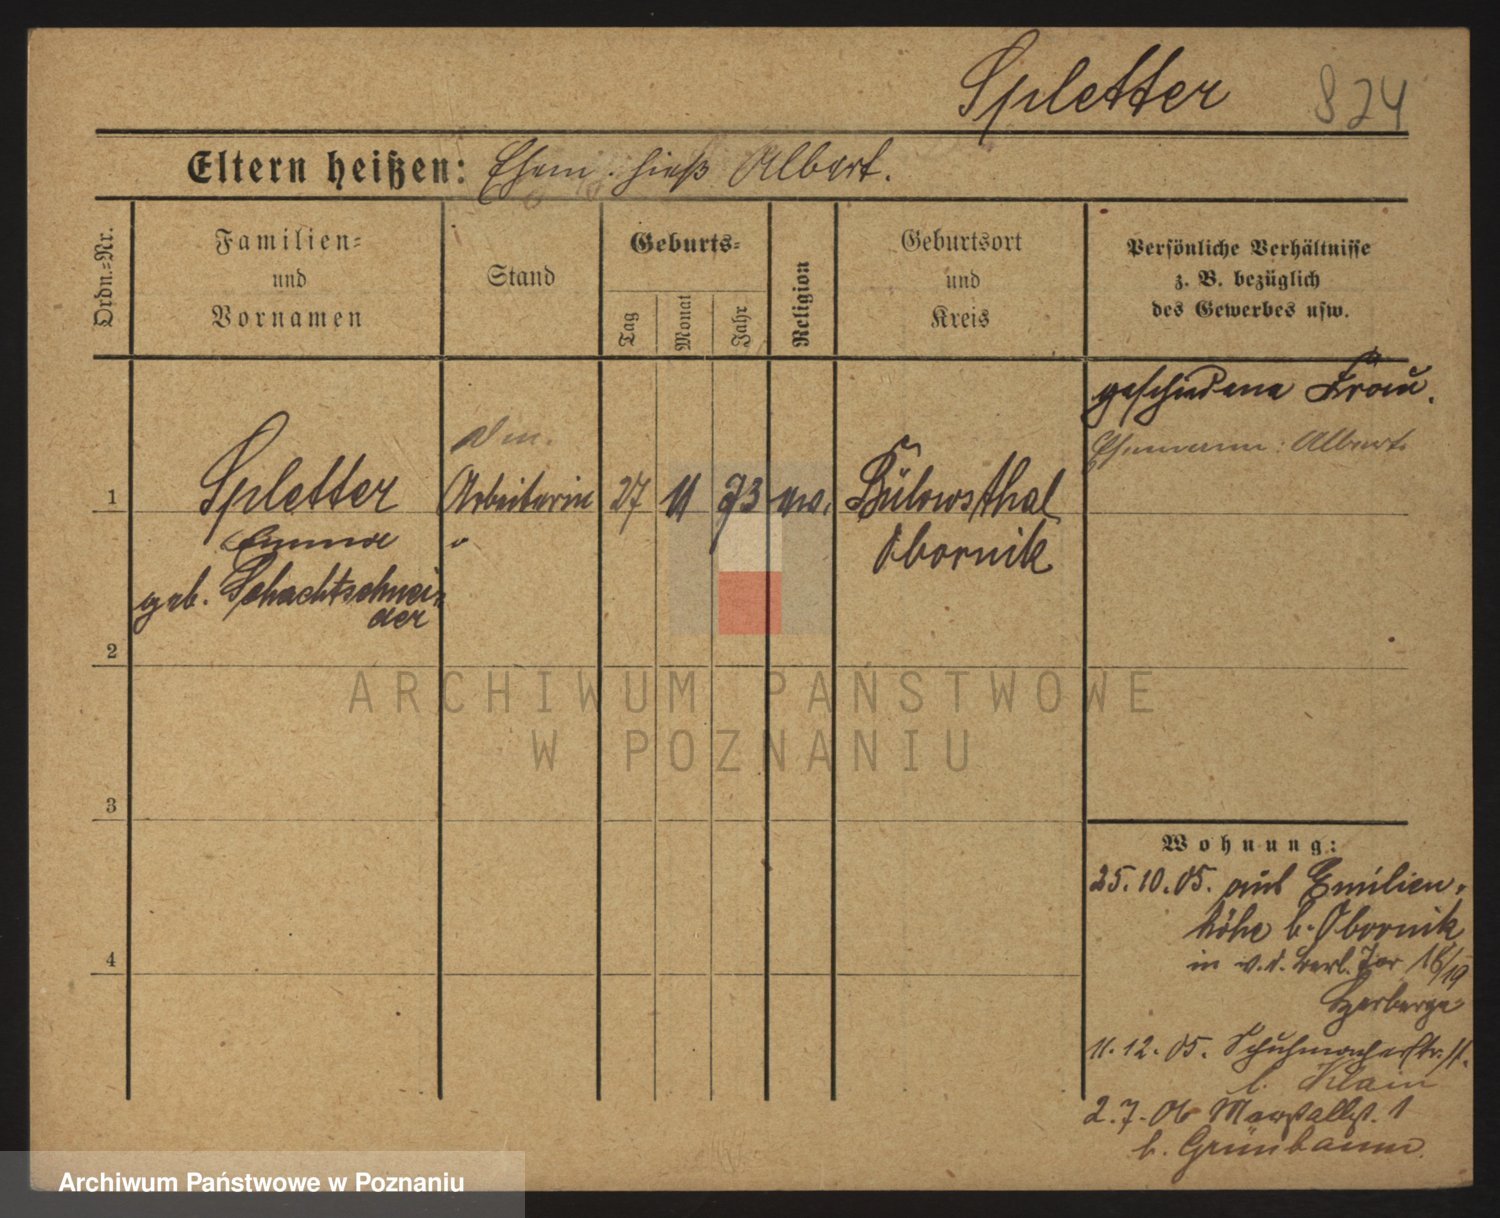 Spletter 824
Eltern heißen: Ehem. hieß Albert.
Ordn.=Nr.
Familien=
und
Vornamen
Stand
Geburts=
Tag
Monat
Jahr
Religion
Geburtsort
und
Kreis
Persönliche Verhältnisse
z. B. bezüglich
des Gewerbes usw.
geschiedene Frau.
Ehemann: Albert.
1 Spletter Arbeiterin 27 11 73 ev. Bülowsthal
Emma Obornik
geb. Schachtschnei=
der
2
3
4
ARCHIWUM PAŃSTWOWE
W POZNANIU
Wohnung:
25.10.05. aus Emilien=
höhe b. Obornik
in v. d. Berl. Tor 18/19
Herberge
11.12.05. Schuhmacherstr. 11.
b. Klein
2.7.06 Marstallst. 1
b. Grünbaum.
Archiwum Państwowe w Poznaniu